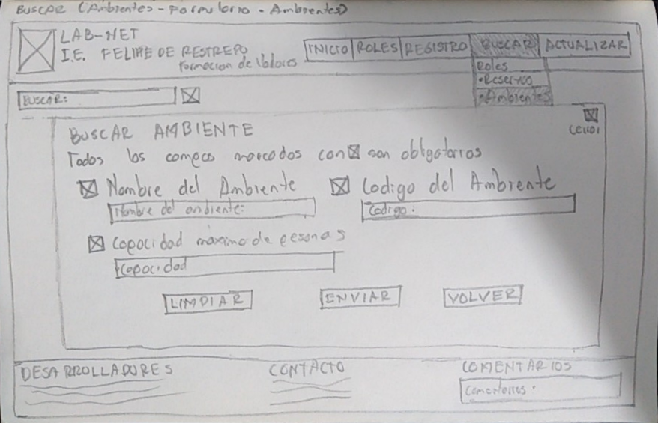 BUSCAR (Ambientes - formulario - Ambientes)
LAB-NET
I.E. FELIPE DE RESTREPO
Formacion de Valores
INICIO ROLES REGISTRO BUSCAR ACTUALIZAR
Roles
•Reservas
•Ambientes
BUSCAR:
BUSCAR AMBIENTE
Todos los campos marcados con son obligatorios
Nombre del Ambiente
Codigo del Ambiente
Nombre del ambiente:
Codigo:
Capacidad maxima de personas
Capacidad
LIMPIAR ENVIAR VOLVER
DESARROLLADORES CONTACTO COMENTARIOS
Comentarios: